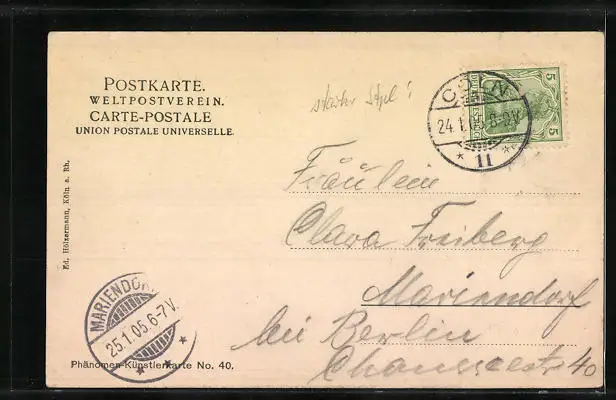 POSTKARTE.
WELTPOSTVEREIN.
CARTE-POSTALE
UNION POSTALE UNIVERSELLE.
CÖLN
24.1.05.8-9V.
* 11 *
5
5
Fräulein
Clara Freiberg
Mariendorf
bei Berlin
Chausseestr 40
Ed. Hölzermann, Köln a. Rh.
MARIENDORF
25.1.05.6-7V.
Phänomen-Künstlerkarte No. 40.